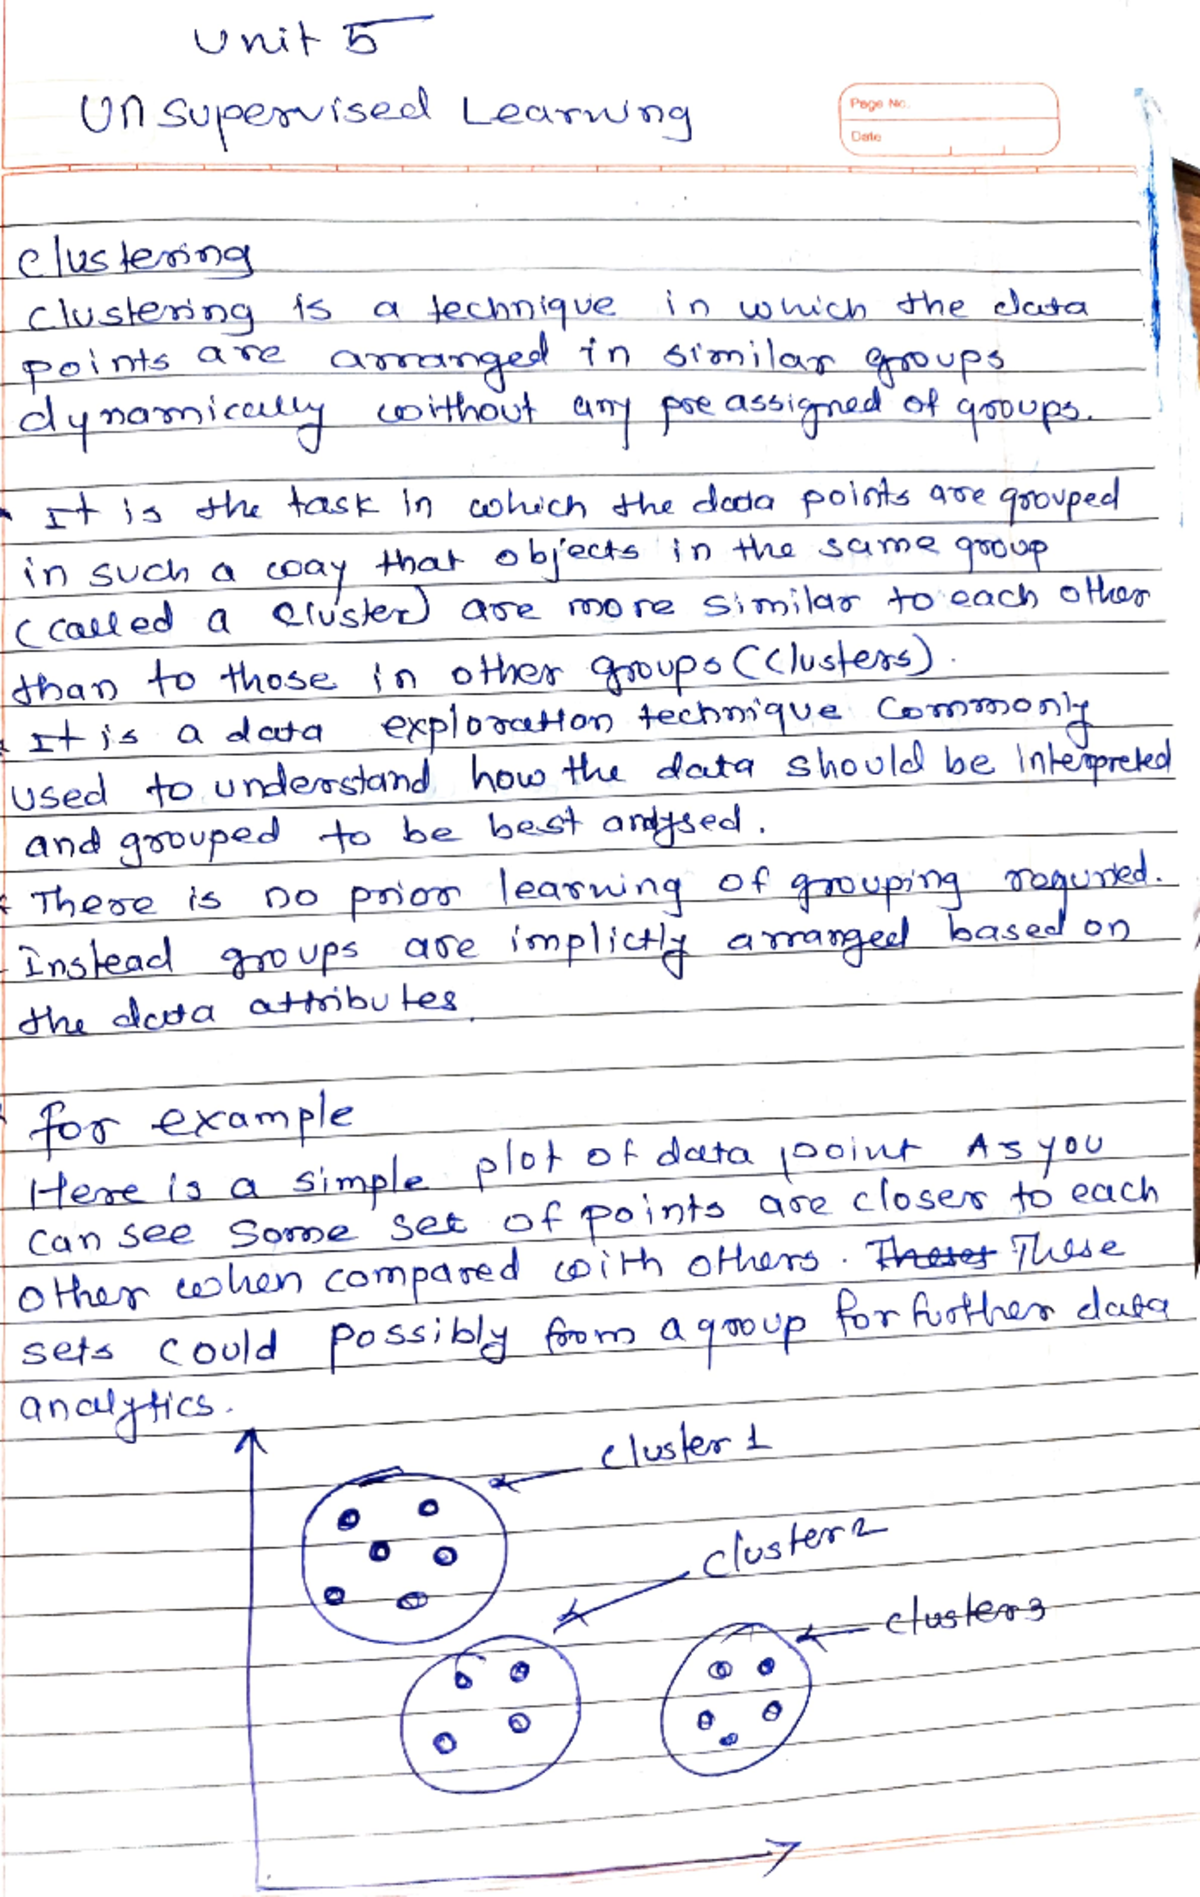 Unit 5
Unsupervised Learning
Page No.
Date
clustering
clustering is a technique in which the data
points are arranged in similar groups
dynamically without any pre assigned of groups.
It is the task in which the data points are grouped
in such a way that objects in the same group
(called a cluster) are more similar to each other
than to those in other groups (clusters).
It is a data exploration technique commonly
used to understand how the data should be interpreted
and grouped to be best analysed.
There is no prior learning of grouping required.
Instead groups are implictly arranged based on
the data attributes.
for example
Here is a simple plot of data point As you
can see some set of points are closer to each
other when compared with others. These
sets could possibly from a group for further data
analytics.
cluster 1
cluster 2
cluster 3